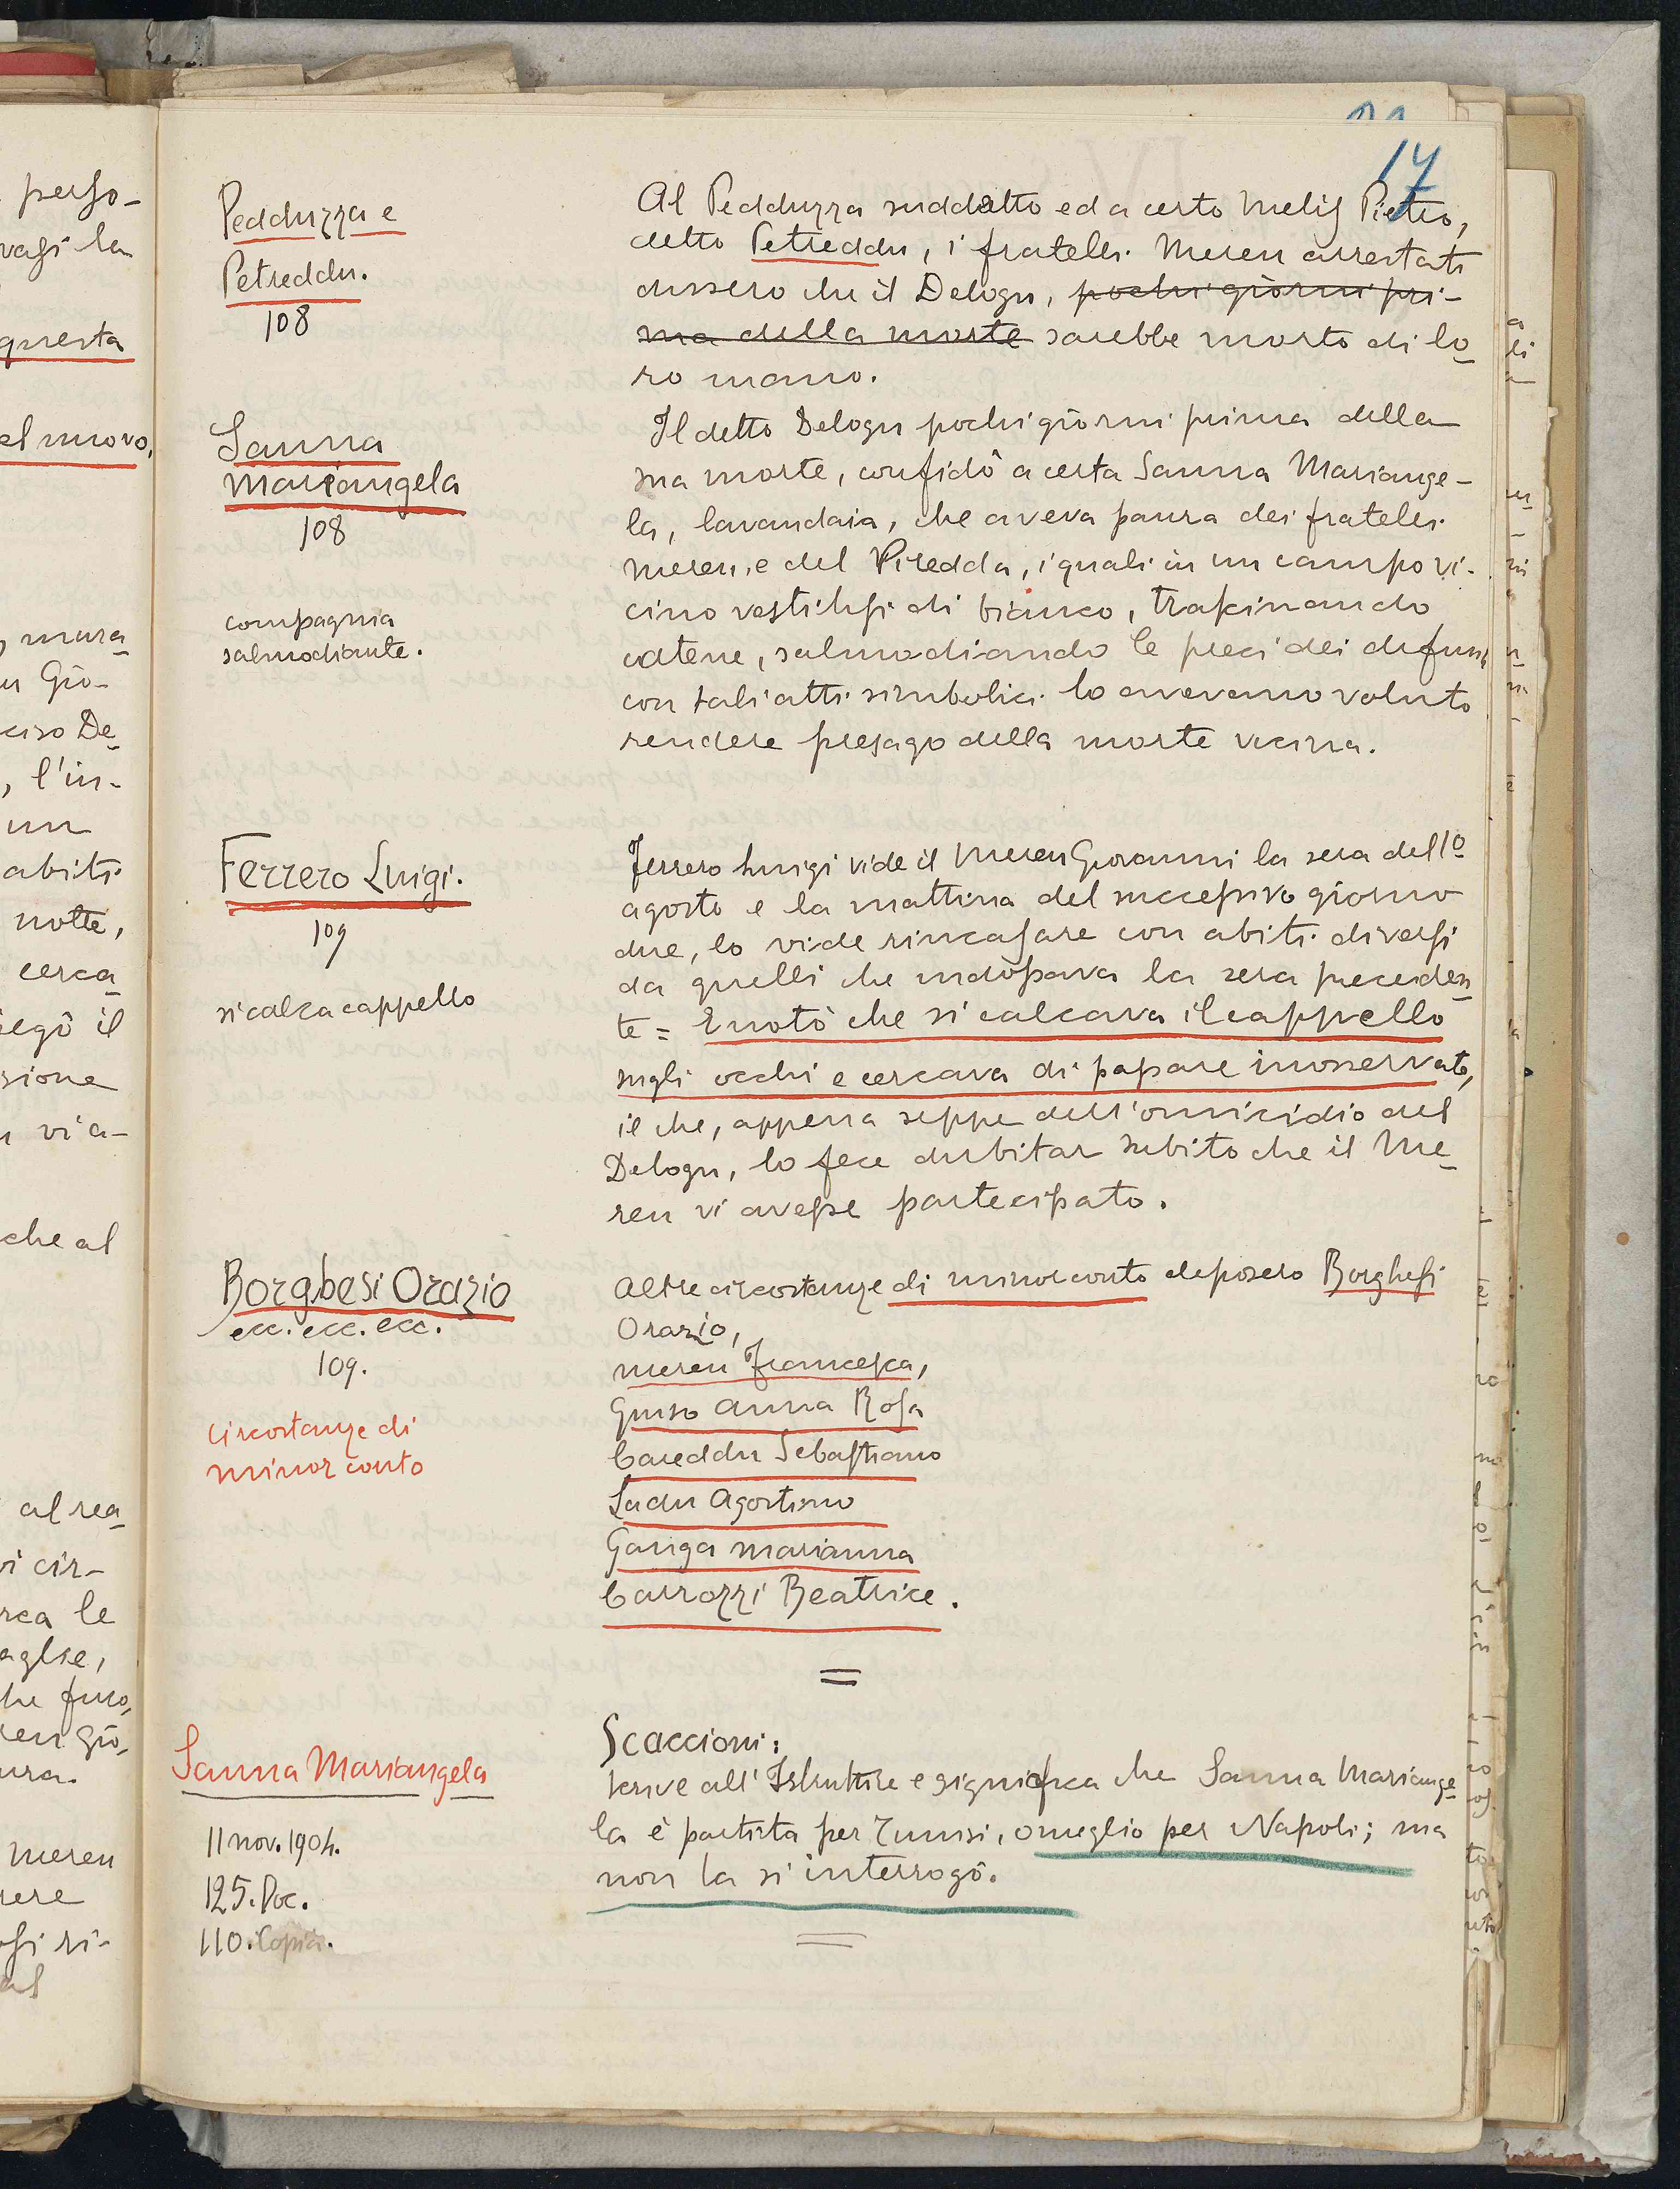 17
Pedduzza e
Petreddu.
108
Al Pedduzza suddetto ed a certo Melis Pietro,
detto Petreddu, i fratelli Mereu arrestati
dissero che il Delogu, pochi giorni pri-
ma della morte sarebbe morto di lo-
ro mano.
Sanna
Mariangela
108
compagnia
salmodiante.
Il detto Delogu pochi giorni prima della
sua morte, confidò a certa Sanna Mariange-
la, lavandaia, che aveva paura dei fratelli
Mereu, e del Piredda, i quali in un campo vi-
cino vestitisi di bianco, trascinando
catene, salmodiando le preci dei defunti
con tali atti simbolici lo avevano voluto
rendere presago della morte vicina.
Ferrero Luigi.
109
si calca cappello
Ferrero Luigi vide il Mereu Giovanni la sera dell'1º
agosto e la mattina del successivo giorno
due, lo vide rincasare con abiti diversi
da quelli che indossava la sera preceden-
te = E notò che si calcava il cappello
sugli occhi e cercava di passare inosservato,
il che, appena seppe dell'omicidio del
Delogu, lo fece dubitar subito che il Me-
reu vi avesse partecipato.
Borghesi Orazio
ecc. ecc. ecc.
109.
circostanze di
minor conto
Altre circostanze di minor conto deposero Borghesi
Orazio,
Mereu Francesca,
Guiso Anna Rosa
Careddu Sebastiano
Ladu Agostino
Ganga Marianna
Carrozzi Beatrice.
=
Sanna Mariangela
11 nov. 1904.
125. Doc.
110. Copia.
Scaccioni:
scrive all'Istruttore e significa che Sanna Mariange-
la è partita per Tunisi, o meglio per Napoli; ma
non la si interrogò.